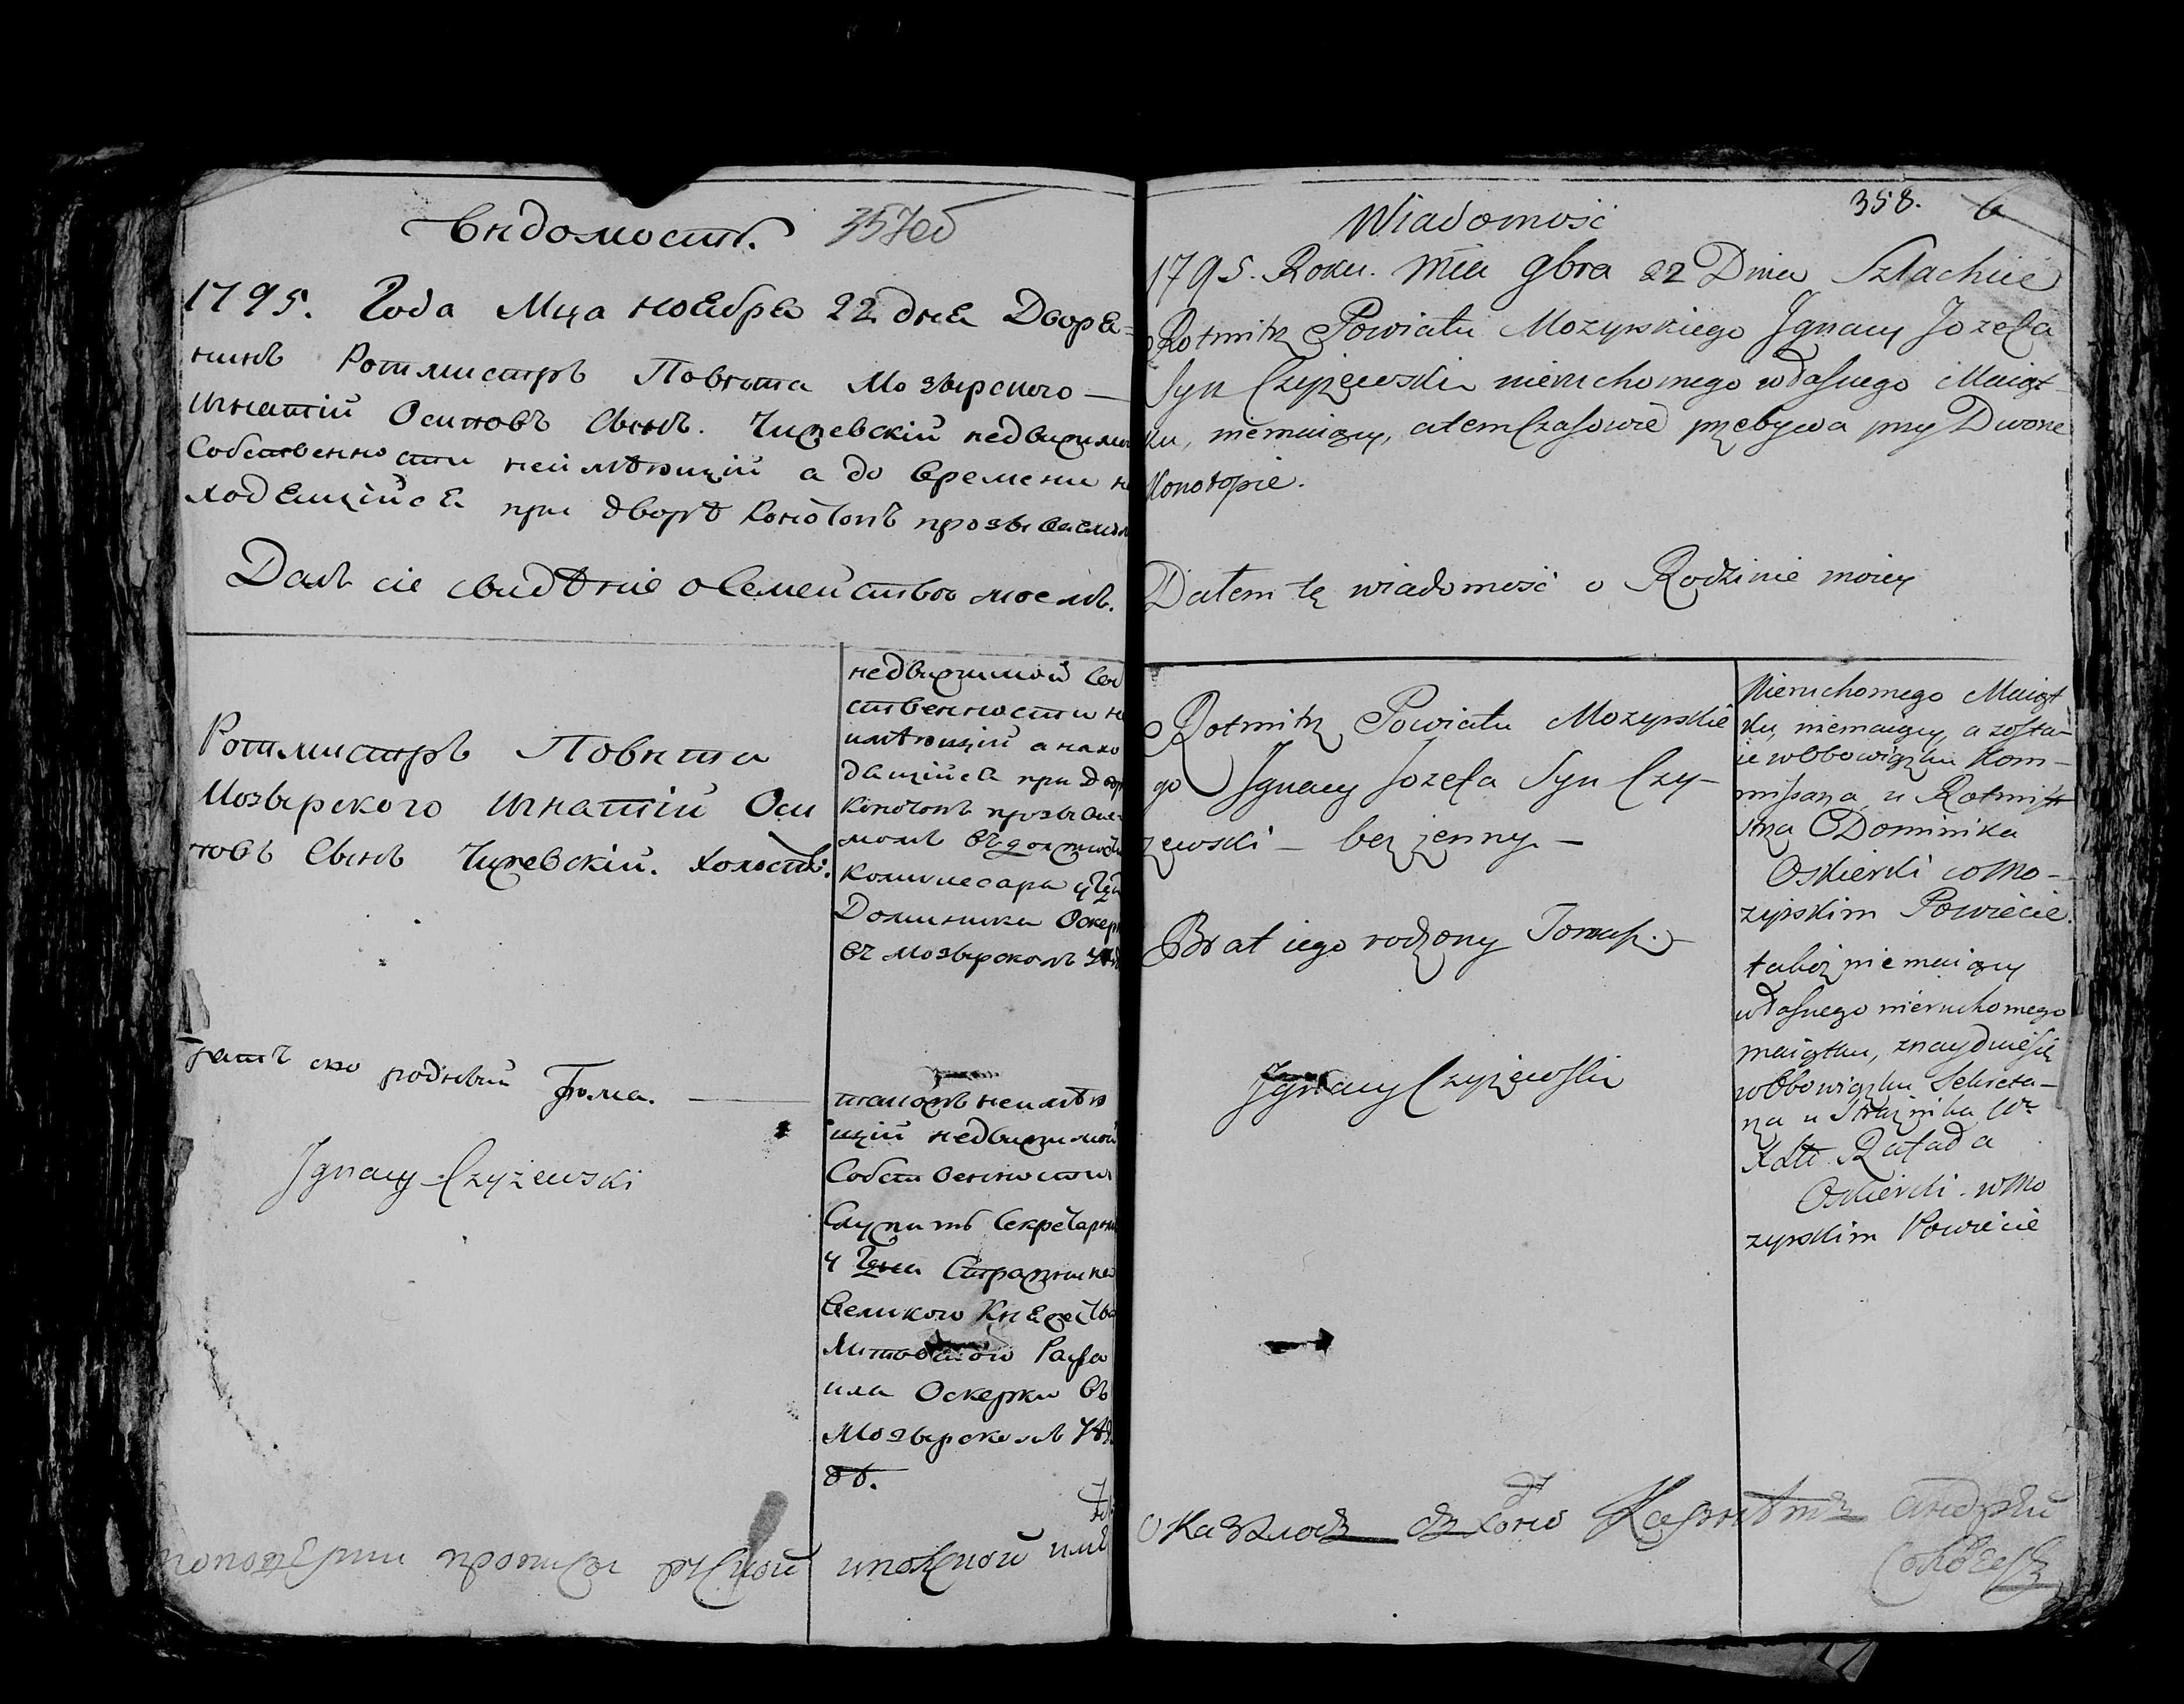 Вѣдомость. 357об
1795. Года Мца ноебра 22 дне Дворе=
нинъ Ротмистръ Повѣта Мозырского —
Игнатій Осиповъ Сынъ. Чижевскій недвижим
Собственности неимѣющій а до времени н
ходещійсе при дворѣ Конотопъ прозываемом
Далъ сіе свидѣніе о Семействѣ моемъ.
Ротмистръ Повѣта
Мозырского Игнатій Оси
повъ Сынъ Чижевскій. холостъ.
недвижимой Соб
ственности н
имѣющій а нахо
дящійся при Двор
Конотопъ прозывае
момъ въ должности
Коммиссара у
Доминика Оскерк
въ Мозырскомъ
ратъ его родный Тома. —
Ignacy Czyżewski
такожъ неимѣю
щій недвижимой
Собственности
Служитъ Секретарем
у Стражника
Великого Кнежества
Литовского Рафа
ила Оскерки въ
Мозырскомъ Уѣз
дѣ.
Wiadomość 358. 6
1795. Roku. Mca 9bra 22 Dnia Szlachcic
Rotmitrz Powiatu Mozyrskiego Ignacy Jozefa
Syn Czyżewski nieruchomego własnego Maiąt-
ku, niemaiący, atemczasowie przebywa przy Dworze
Konotopie.
Dałem tę wiadomość o Rodzinie moiey
Rotmitrz Powiatu Mozyrskie
go Ignacy Jozefa Syn Czy-
żewski — bez żenny. —
Brat iego rodzony Tomasz. —
Ignacy Czyżewski
Nieruchomego Maiąt
ku niemaiący, a zosta-
ie w Obowiązku Kom-
missarza u Rotmist
rza Dominika
Oskierki w Mo-
zyrskim Powiecie.
takoż niemaiący
własnego nieruchomego
maiątku, znayduie się
w Obowiązku Sekreta-
rza u Strażnika
Rafała
Oskierki w Mo
zyrskim Powiecie